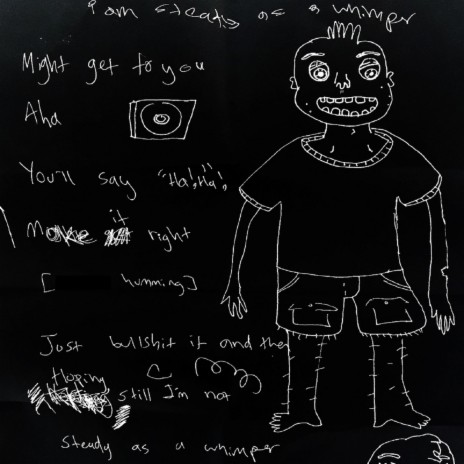 i am steady as a whimper
Might get to you
Aha
You'll say "Ha!, Ha"!
Make it right
[ humming]
Just bullshit it and then
Hoping still I'm not
Steady as a whimper